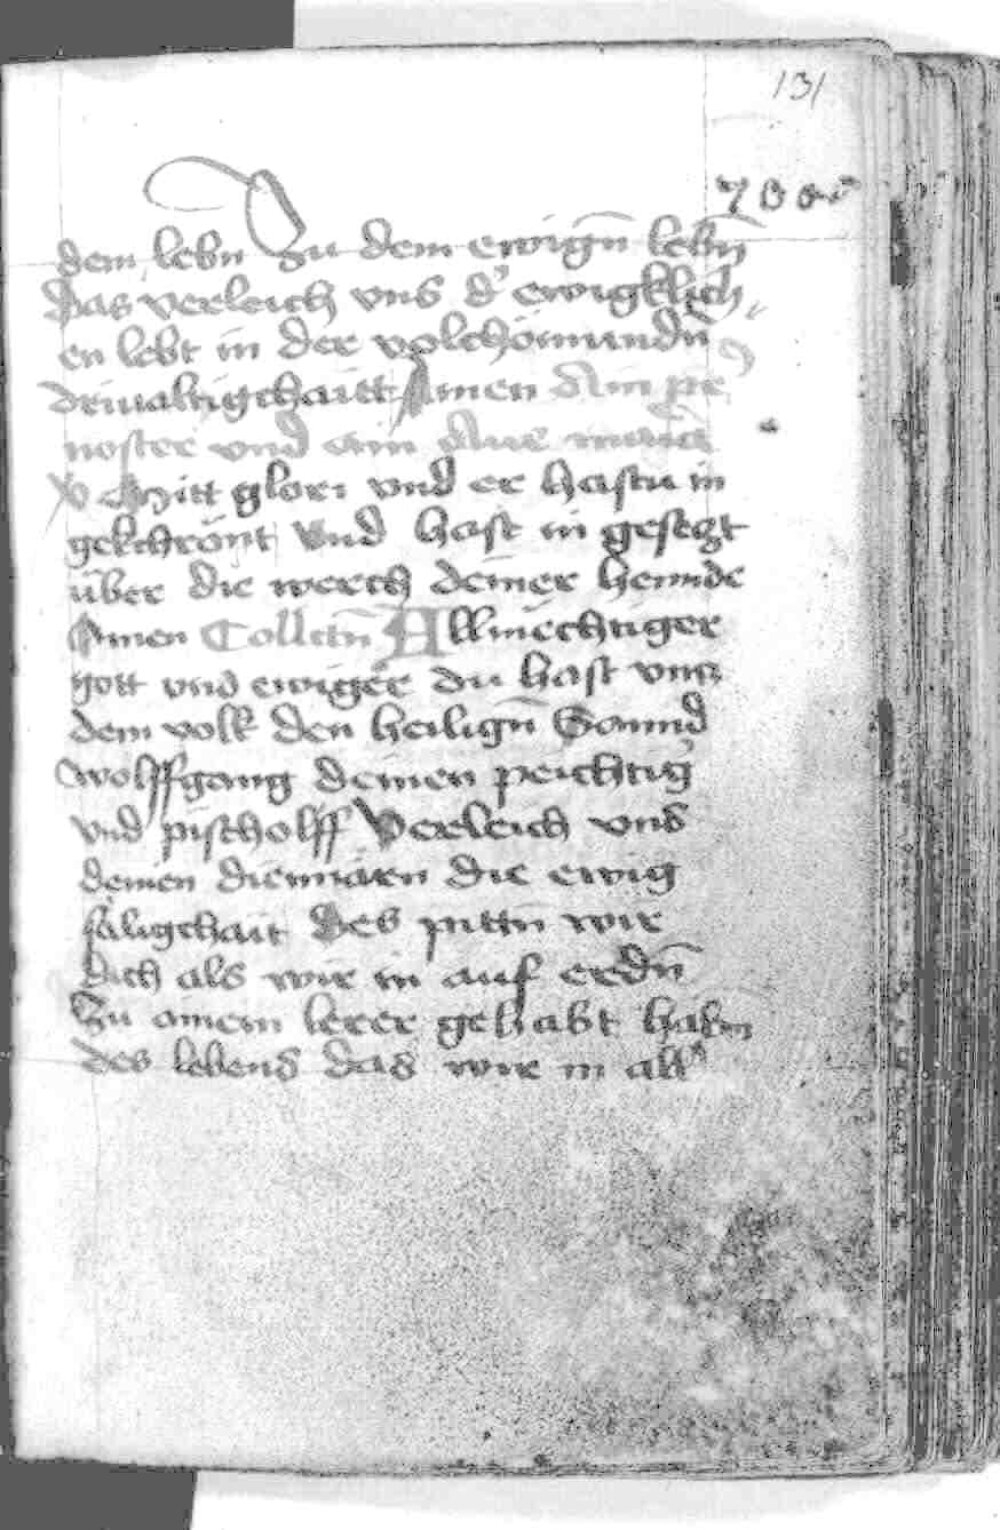 131
dem lebn Zu dem ewign̄ lebn̄
Das verleich vns d' ewigklich
en lebt in der volchömundn̄
driualtigchaitt Amen Ain pr̄
noster vnd ain Aue maria
V Mitt glori vnd er hastu in
gekchrönt Vnd hast in gesetzt
über die werch deiner hennde
Amen Collectn̄ Allmëchtiger
gott vnd ewiger du hast vnns
dem volk den heilign̄ Sannd
wolffgang deinen peichtig'
vnd pischolff Verleich vns
deinen diennärn die ewig
säligchait Des pittn̄ wir
Dich als wir in auf erdn̄
Zu ainem lerer gehabt habn̄
des lebens das wir in all'n